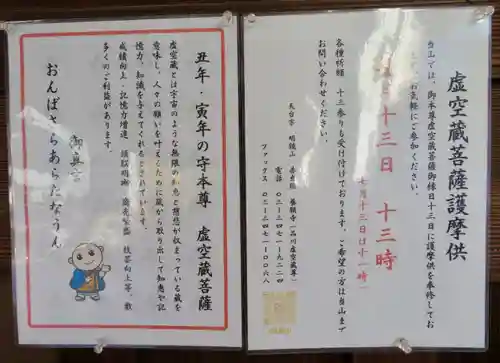 虚空蔵菩薩護摩供
当山では、御本尊虚空蔵菩薩御縁日十三日に護摩供を奉修してお
お気軽にご参加ください。
十三日 十三時
七月十三日は十一時）
各種祈願 十三参りも受け付けております。ご希望の方は当山まで
お問い合わせください。
天台宗 明鏡山 善光院 養願寺（品川虚空蔵尊）
電話 〇三-三四七一-九二二四
ファックス 〇三-三四七一-〇〇六八
丑年・寅年の守本尊 虚空蔵菩薩
虚空蔵とは宇宙のような無限の智恵と慈悲が収まっている蔵を
意味し、人々の願いを叶えるために蔵から取り出して知恵や記
憶力、知識を与えてくれるとされています。
成績向上・記憶力増進、頭脳明晰、商売繁盛、技芸向上等、数
多くのご利益があります。
御真言
おんばさらあらたなうん